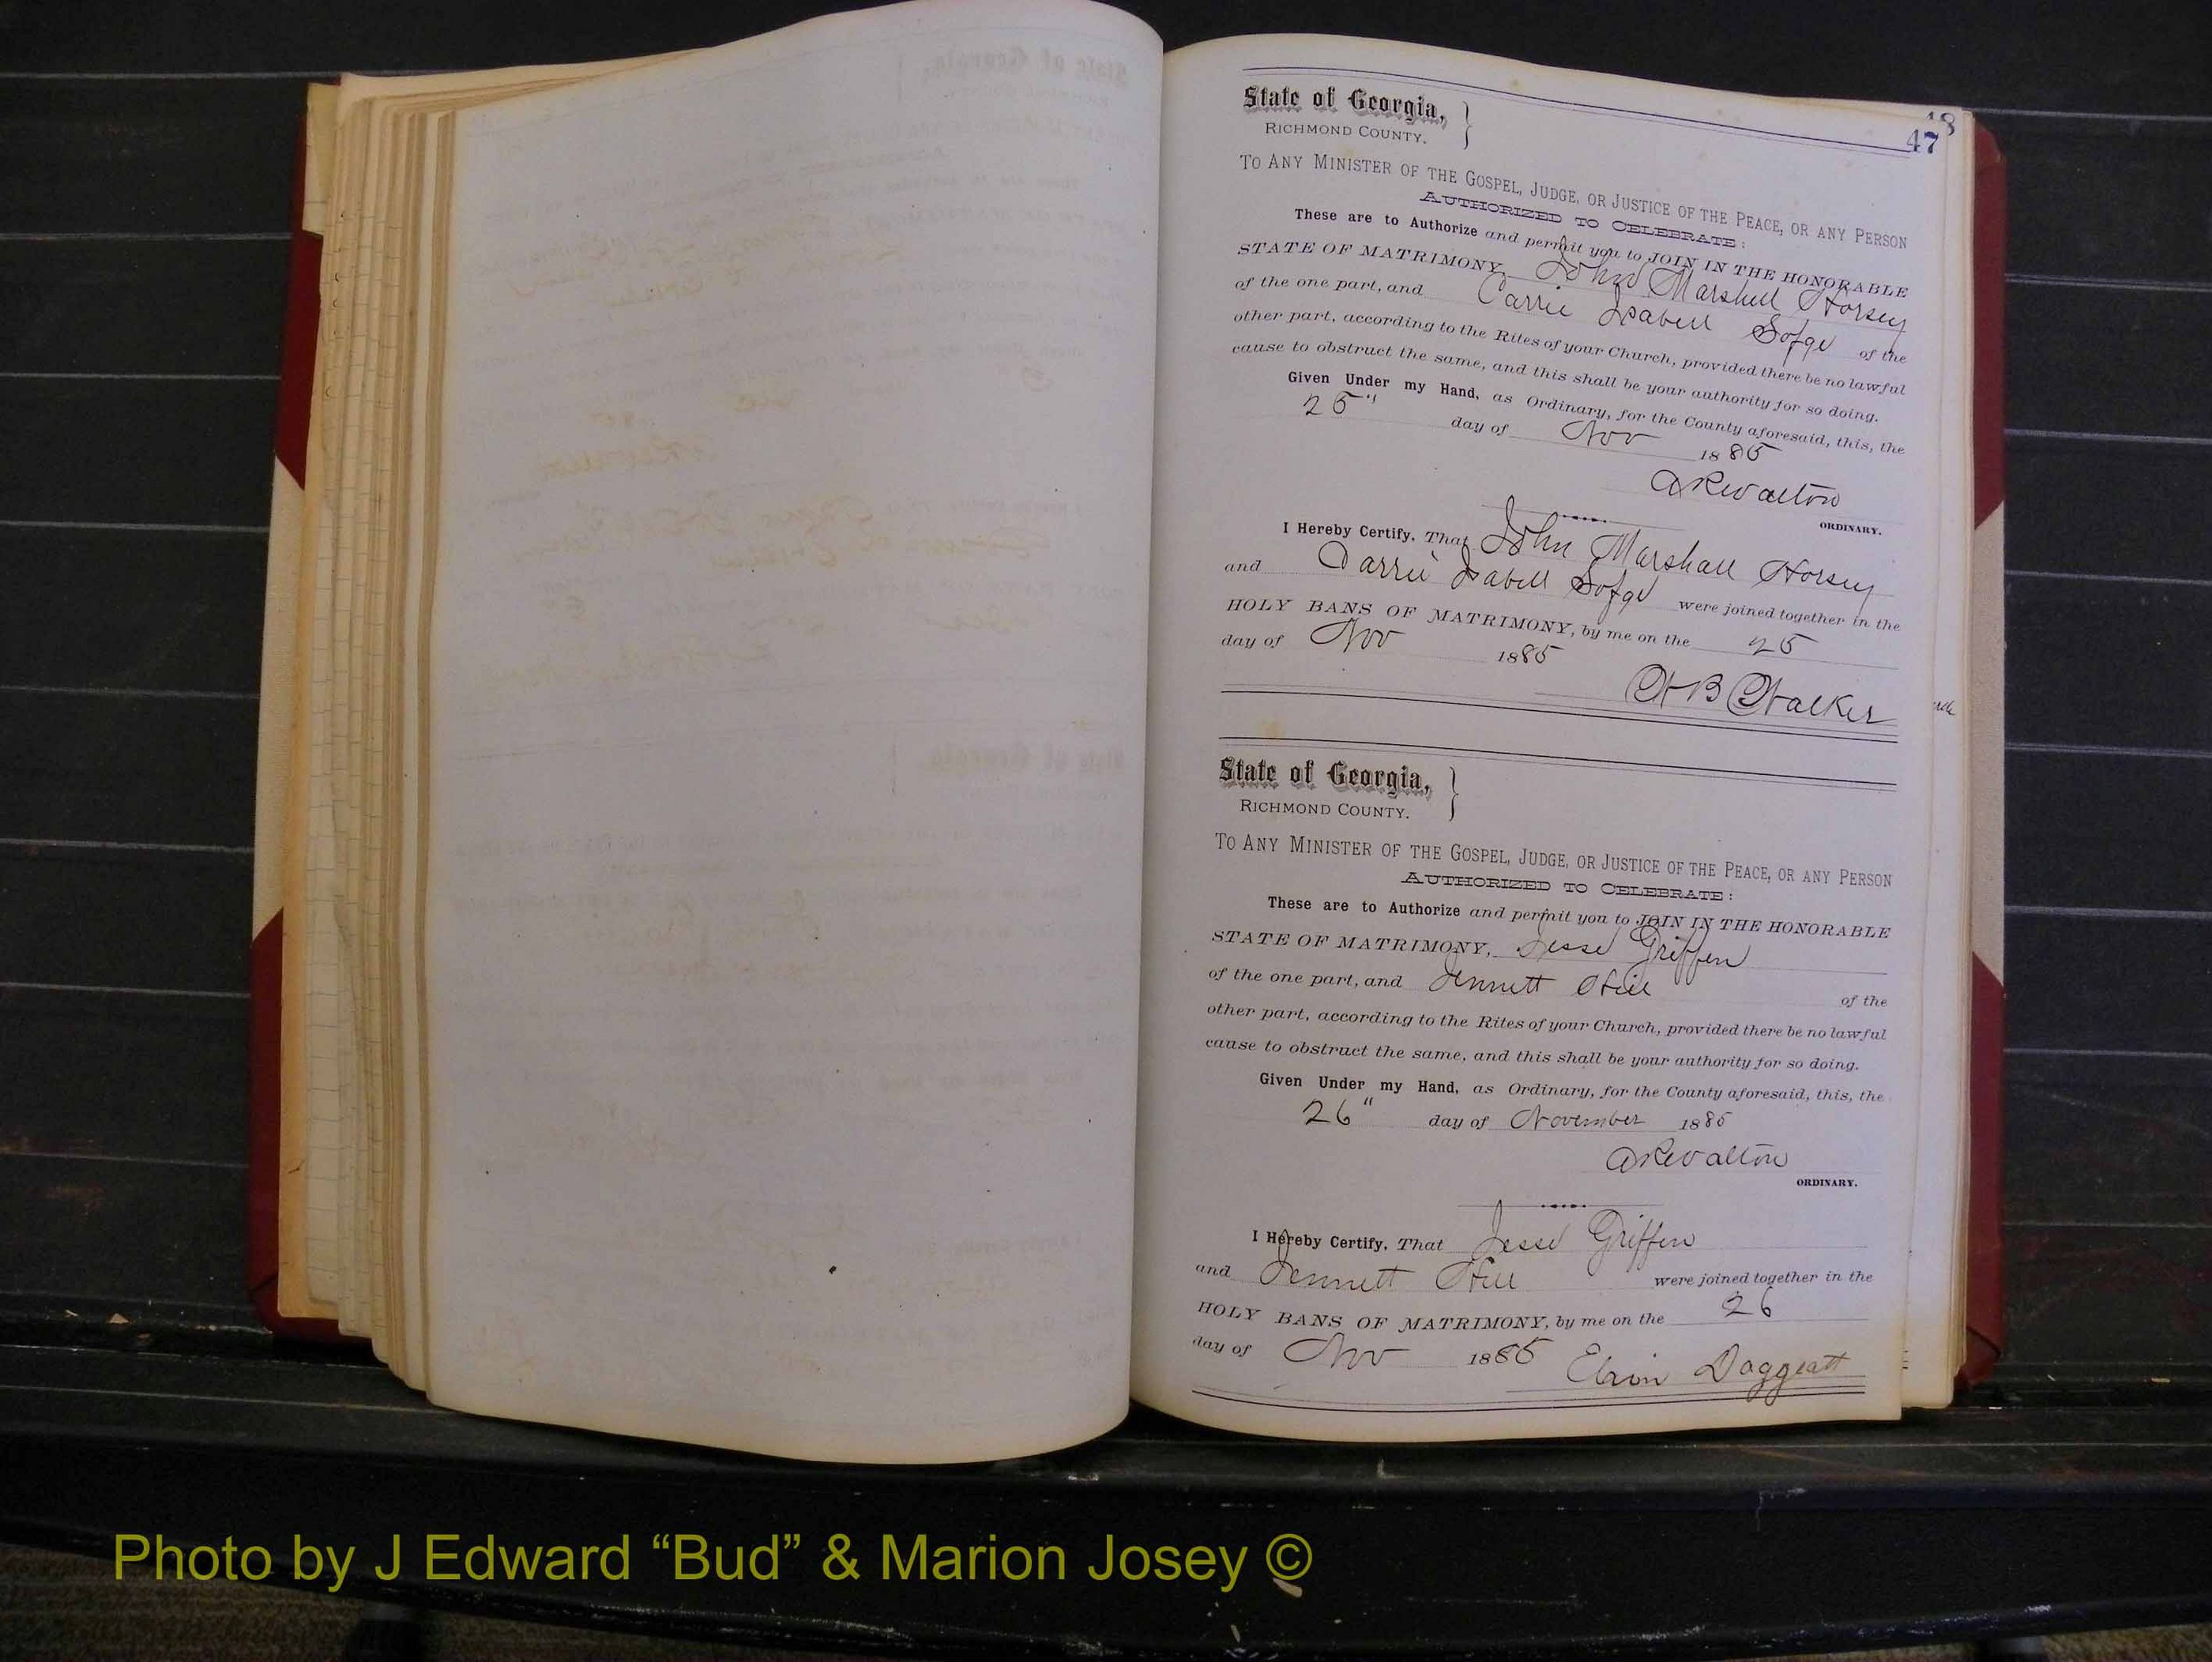 18
47
State of Georgia, }
RICHMOND COUNTY.
TO ANY MINISTER OF THE GOSPEL, JUDGE, OR JUSTICE OF THE PEACE, OR ANY PERSON
AUTHORIZED TO CELEBRATE:
These are to Authorize and permit you to JOIN IN THE HONORABLE
STATE OF MATRIMONY, John Marshall Horsey
of the one part, and Carrie Isabell Sofge of the
other part, according to the Rites of your Church, provided there be no lawful
cause to obstruct the same, and this shall be your authority for so doing.
Given Under my Hand, as Ordinary, for the County aforesaid, this, the
25" day of Nov 1885
ARWalton
ORDINARY.
I Hereby Certify, That John Marshall Horsey
and Carrie Isabell Sofge were joined together in the
HOLY BANS OF MATRIMONY, by me on the 25
day of Nov 1885
Walker
State of Georgia, }
RICHMOND COUNTY.
TO ANY MINISTER OF THE GOSPEL, JUDGE, OR JUSTICE OF THE PEACE, OR ANY PERSON
AUTHORIZED TO CELEBRATE:
These are to Authorize and permit you to JOIN IN THE HONORABLE
STATE OF MATRIMONY, Jesse Griffen
of the one part, and Jennett Hill of the
other part, according to the Rites of your Church, provided there be no lawful
cause to obstruct the same, and this shall be your authority for so doing.
Given Under my Hand, as Ordinary, for the County aforesaid, this, the
26" day of November 1885
ARWalton
ORDINARY.
I Hereby Certify, That Jesse Griffen
and Jennett Hill were joined together in the
HOLY BANS OF MATRIMONY, by me on the 26
day of Nov 1885
Daggeatt
Photo by J Edward “Bud” & Marion Josey ©